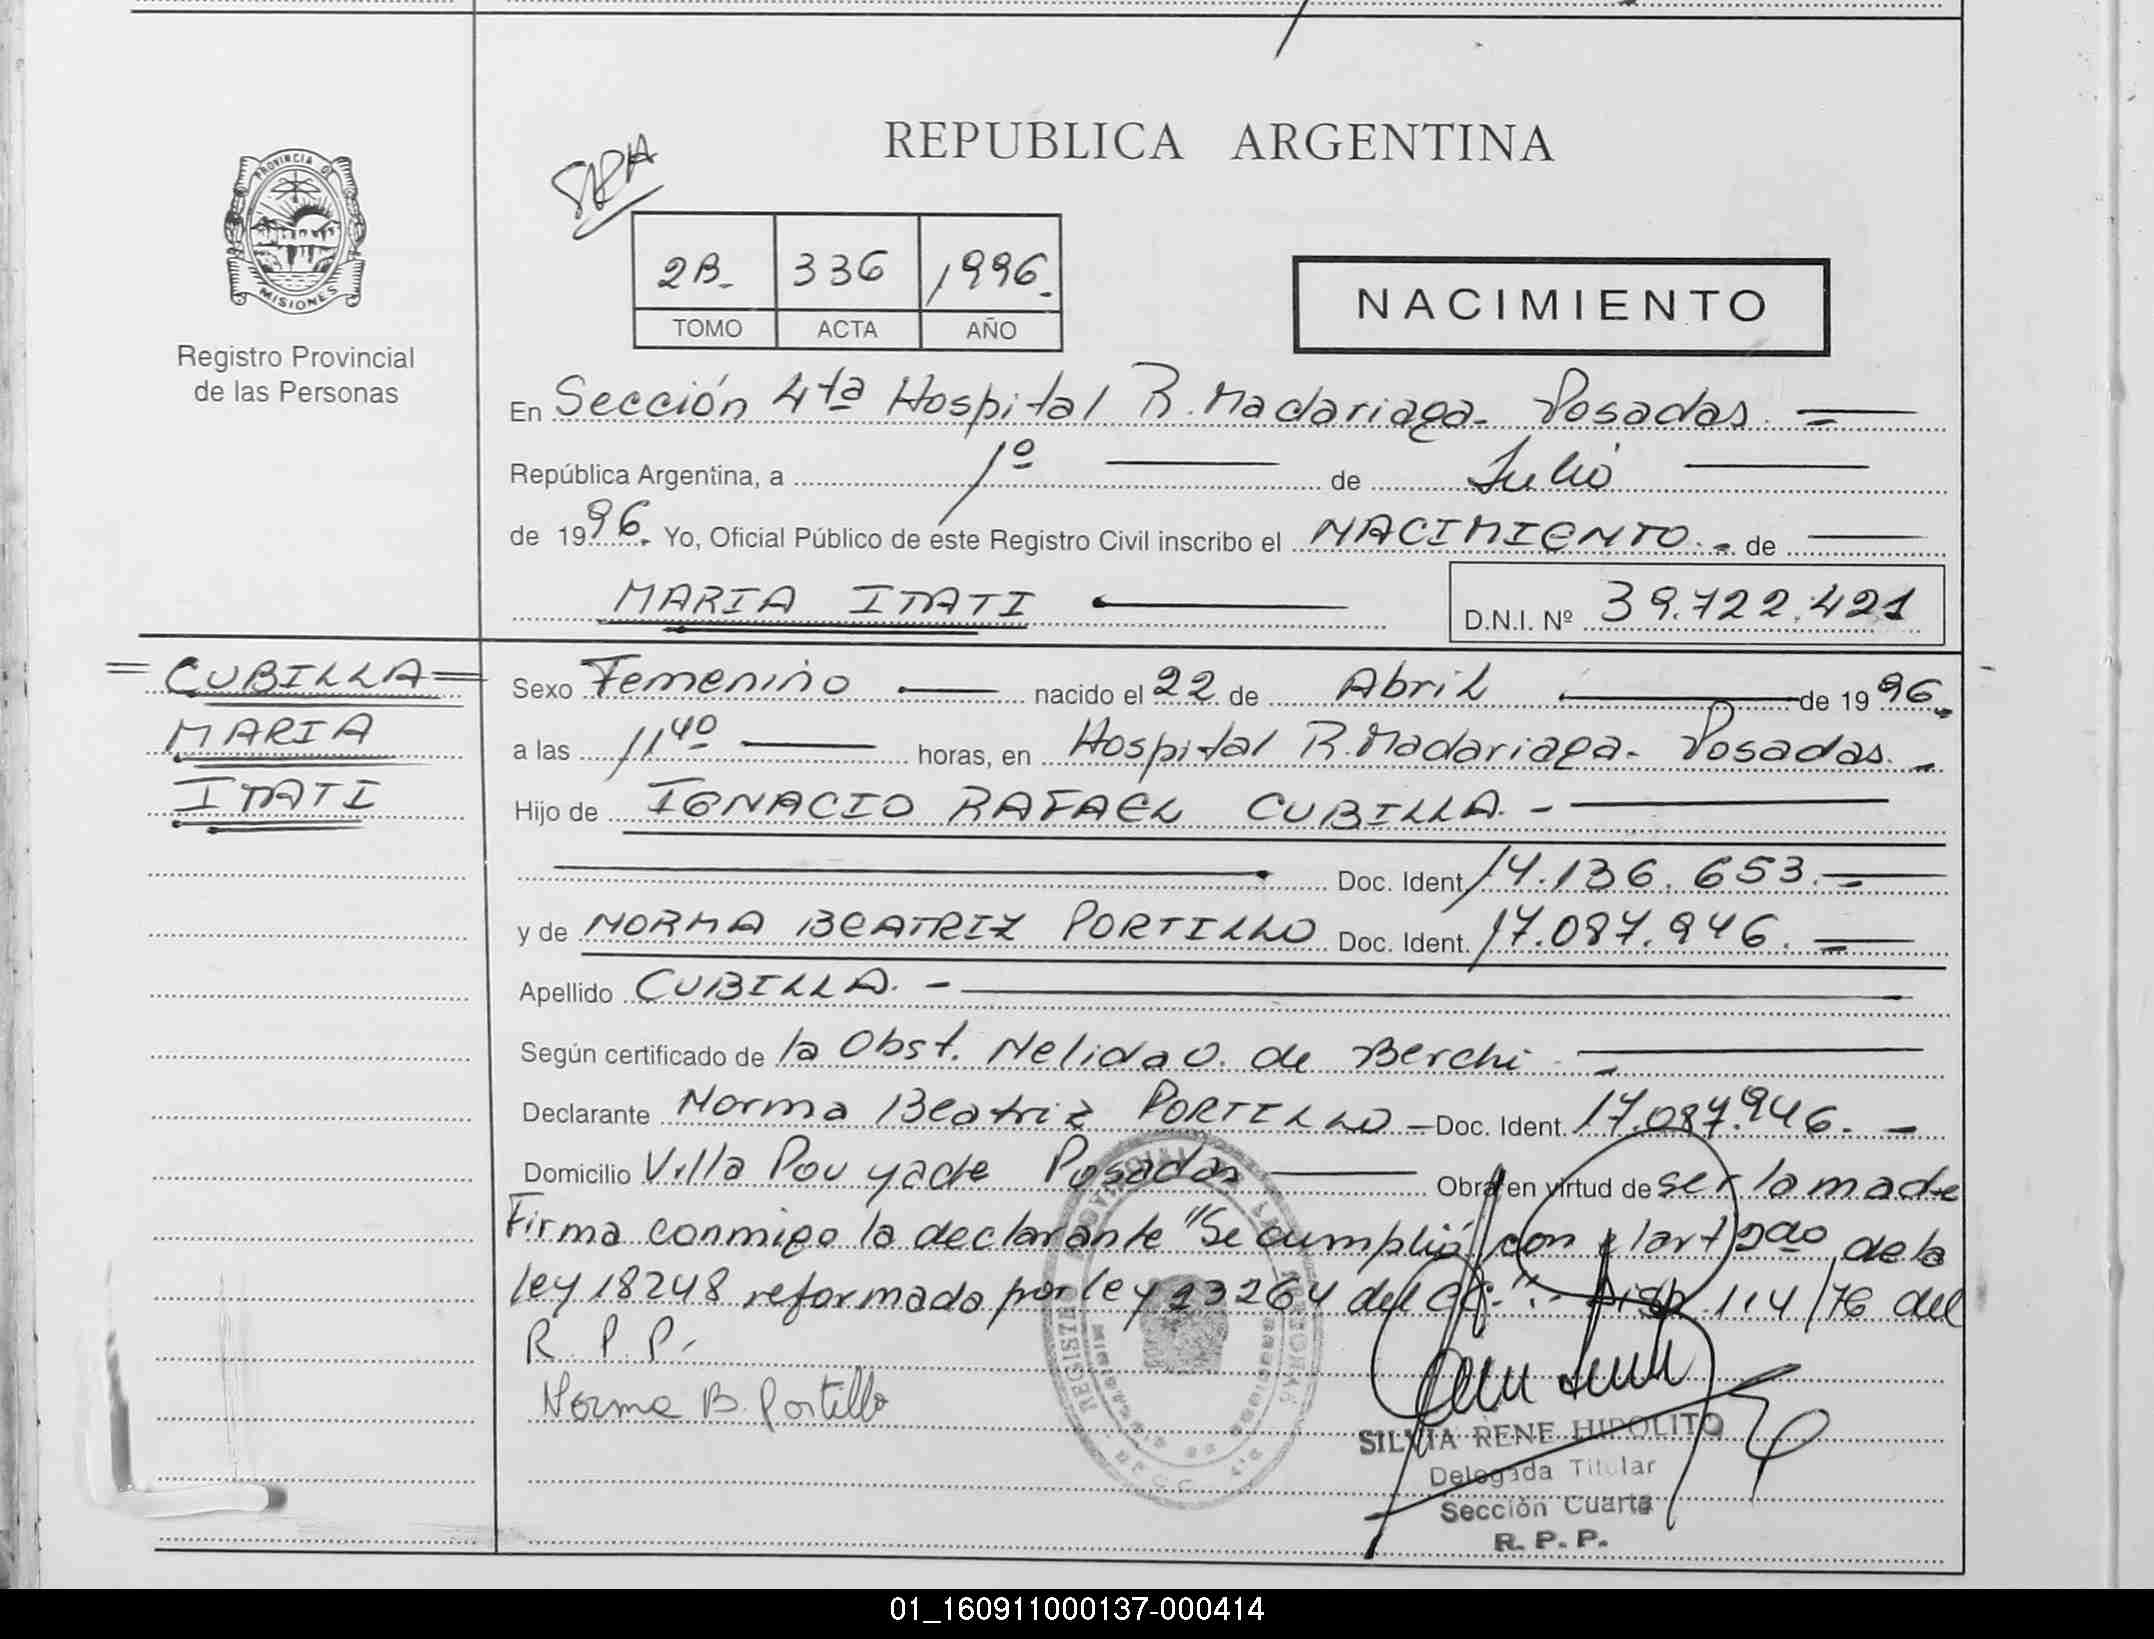 REPUBLICA ARGENTINA
PROVINCIA DE
MISIONES
Registro Provincial
de las Personas
2B- 336 1996.-
TOMO ACTA AÑO
NACIMIENTO
En Sección 4ta Hospital R. Madariaga- Posadas.=
República Argentina, a 1º de Julio
de 1996.- Yo, Oficial Público de este Registro Civil inscribo el NACIMIENTO.- de
MARIA ITATI
D.N.I. Nº 39.722.421
=CUBILLA=
MARIA
ITATI
Sexo Femenino nacido el 22 de Abril de 1996.-
a las 11 40 horas, en Hospital R. Madariaga- Posadas.-
Hijo de IGNACIO RAFAEL CUBILLA.-
Doc. Ident. 14.136.653.-
y de NORMA BEATRIZ PORTILLO Doc. Ident. 17.087.946.-
Apellido CUBILLA.-
Según certificado de la Obst. Nelida O. de Berchi.-
Declarante Norma Beatriz PORTILLO- Doc. Ident. 17.087.946.-
Domicilio Villa Pou yade Posadas Obra en virtud de ser la madre
Firma conmigo la declarante "Se cumplió con el art 2do de la
ley 18248 reformada por ley 23264 del CC.".- Disp. 114/76 del
R. P. P.
Norma B. Portillo
SILVIA RENE HIPOLITO
Delegada Titular
Sección Cuarta
R. P. P.
01_160911000137-000414